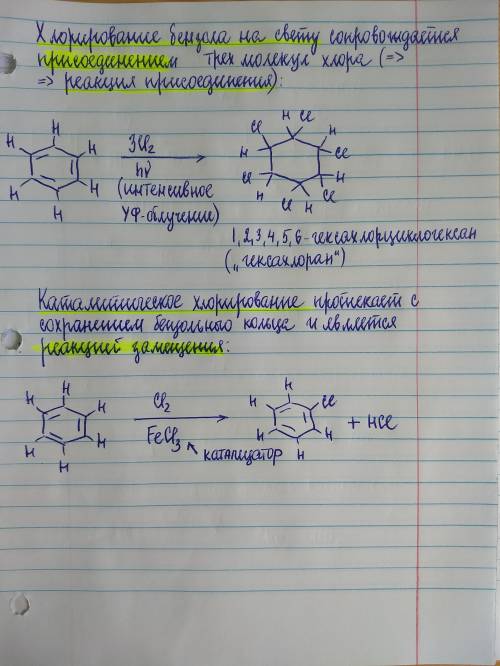 Хлорирование бензола на свету сопровождается
присоединением трех молекул хлора (=>
=> реакция присоединения):
H H H H H H
3Cl₂
hν
(интенсивное
УФ-облучение)
H Cl H Cl H Cl H Cl H Cl H Cl
1,2,3,4,5,6-гексахлорциклогексан
(„гексахлоран“)
Каталитическое хлорирование протекает с
сохранением бензольного кольца и является
реакцией замещения:
H H H H H H
Cl₂
FeCl₃
катализатор
H H Cl H H H
+ HCl